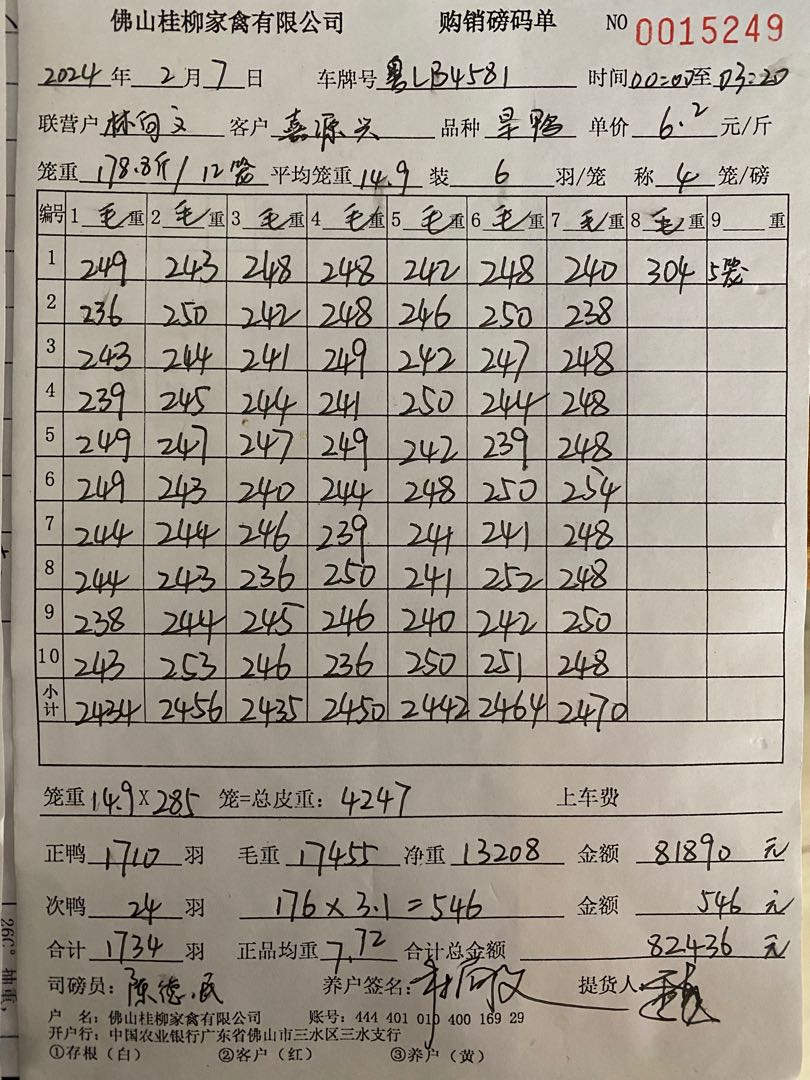 佛山桂柳家禽有限公司 购销磅码单 NO 0015249
2024年2月7日 车牌号 粤LB4581 时间00:00至03:20
联营户 林向文 客户 喜源兴 品种 旱鸭 单价 6.2 元/斤
笼重 178.8斤/12笼 平均笼重 14.9 装 6 羽/笼 称 4 笼/磅
编号 1 毛重 2 毛重 3 毛重 4 毛重 5 毛重 6 毛重 7 毛重 8 毛重 9 重
1 249 243 248 248 242 248 240 304 5笼
2 236 250 242 248 246 250 238
3 243 244 241 249 242 247 248
4 239 245 244 241 250 244 248
5 249 247 247 249 242 239 248
6 249 243 240 244 248 250 254
7 244 244 246 239 241 241 248
8 244 243 236 250 241 252 248
9 238 244 245 246 240 242 250
10 243 253 246 236 250 251 248
小计 2434 2456 2435 2450 2442 2464 2470
笼重 14.9×285 笼=总皮重: 4247 上车费
正鸭 1710 羽 毛重 17455 净重 13208 金额 81890 元
次鸭 24 羽 176×3.1=546 金额 546 元
合计 1734 羽 正品均重 7.72 合计总金额 82436 元
司磅员: 陈德民 养户签名: 林向文 提货人
户 名: 佛山桂柳家禽有限公司 账号: 444 401 010 400 169 29
开户行: 中国农业银行广东省佛山市三水区三水支行
①存根（白） ②客户（红） ③养户（黄）